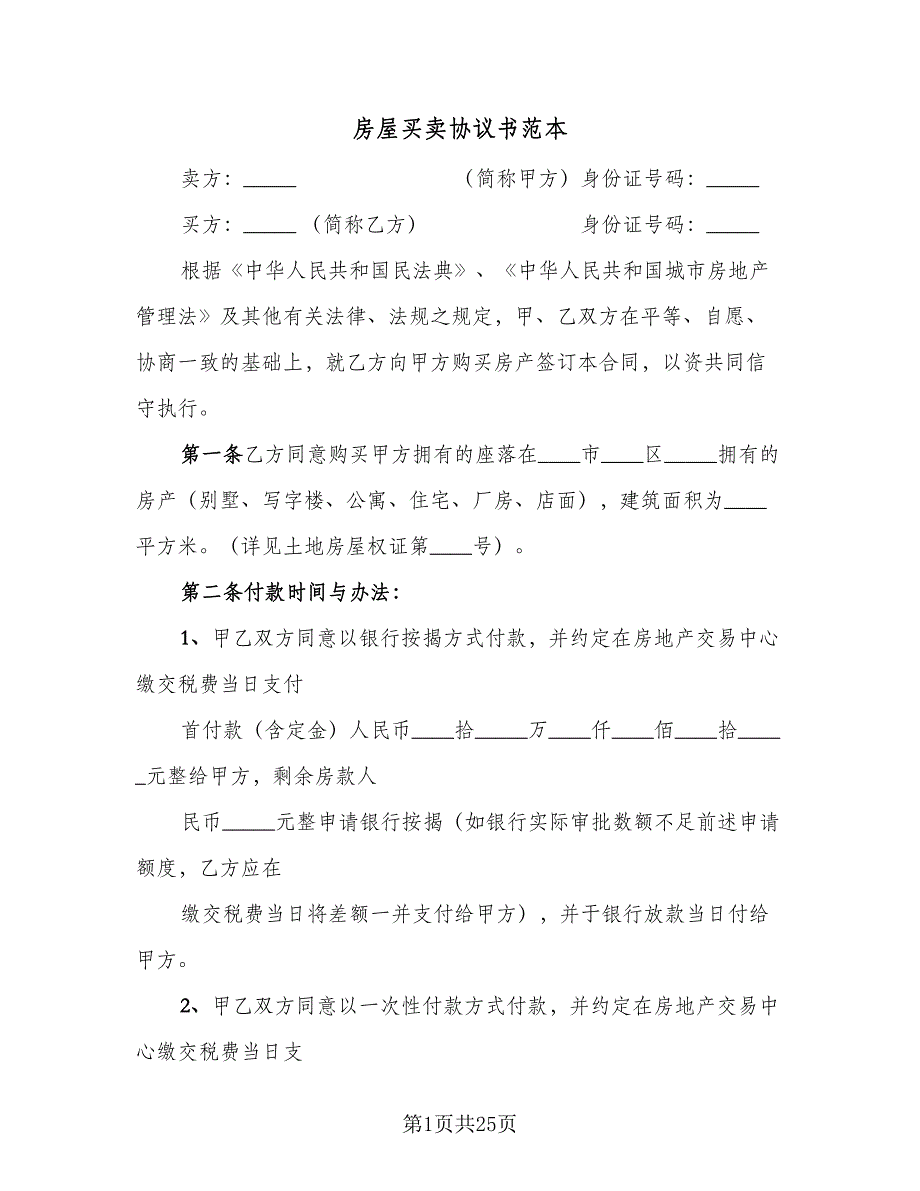 房屋买卖协议书范本
卖方：_____ （简称甲方）身份证号码：_____
买方：_____ （简称乙方） 身份证号码：_____
根据《中华人民共和国民法典》、《中华人民共和国城市房地产
管理法》及其他有关法律、法规之规定，甲、乙双方在平等、自愿、
协商一致的基础上，就乙方向甲方购买房产签订本合同，以资共同信
守执行。
第一条乙方同意购买甲方拥有的座落在____市____区_____拥有的
房产（别墅、写字楼、公寓、住宅、厂房、店面），建筑面积为____
平方米。（详见土地房屋权证第____号）。
第二条付款时间与办法：
1、甲乙双方同意以银行按揭方式付款，并约定在房地产交易中心
缴交税费当日支付
首付款（含定金）人民币____拾_____万____仟____佰____拾____
_元整给甲方，剩余房款人
民币_____元整申请银行按揭（如银行实际审批数额不足前述申请
额度，乙方应在
缴交税费当日将差额一并支付给甲方），并于银行放款当日付给
甲方。
2、甲乙双方同意以一次性付款方式付款，并约定在房地产交易中
心缴交税费当日支
第1页共25页